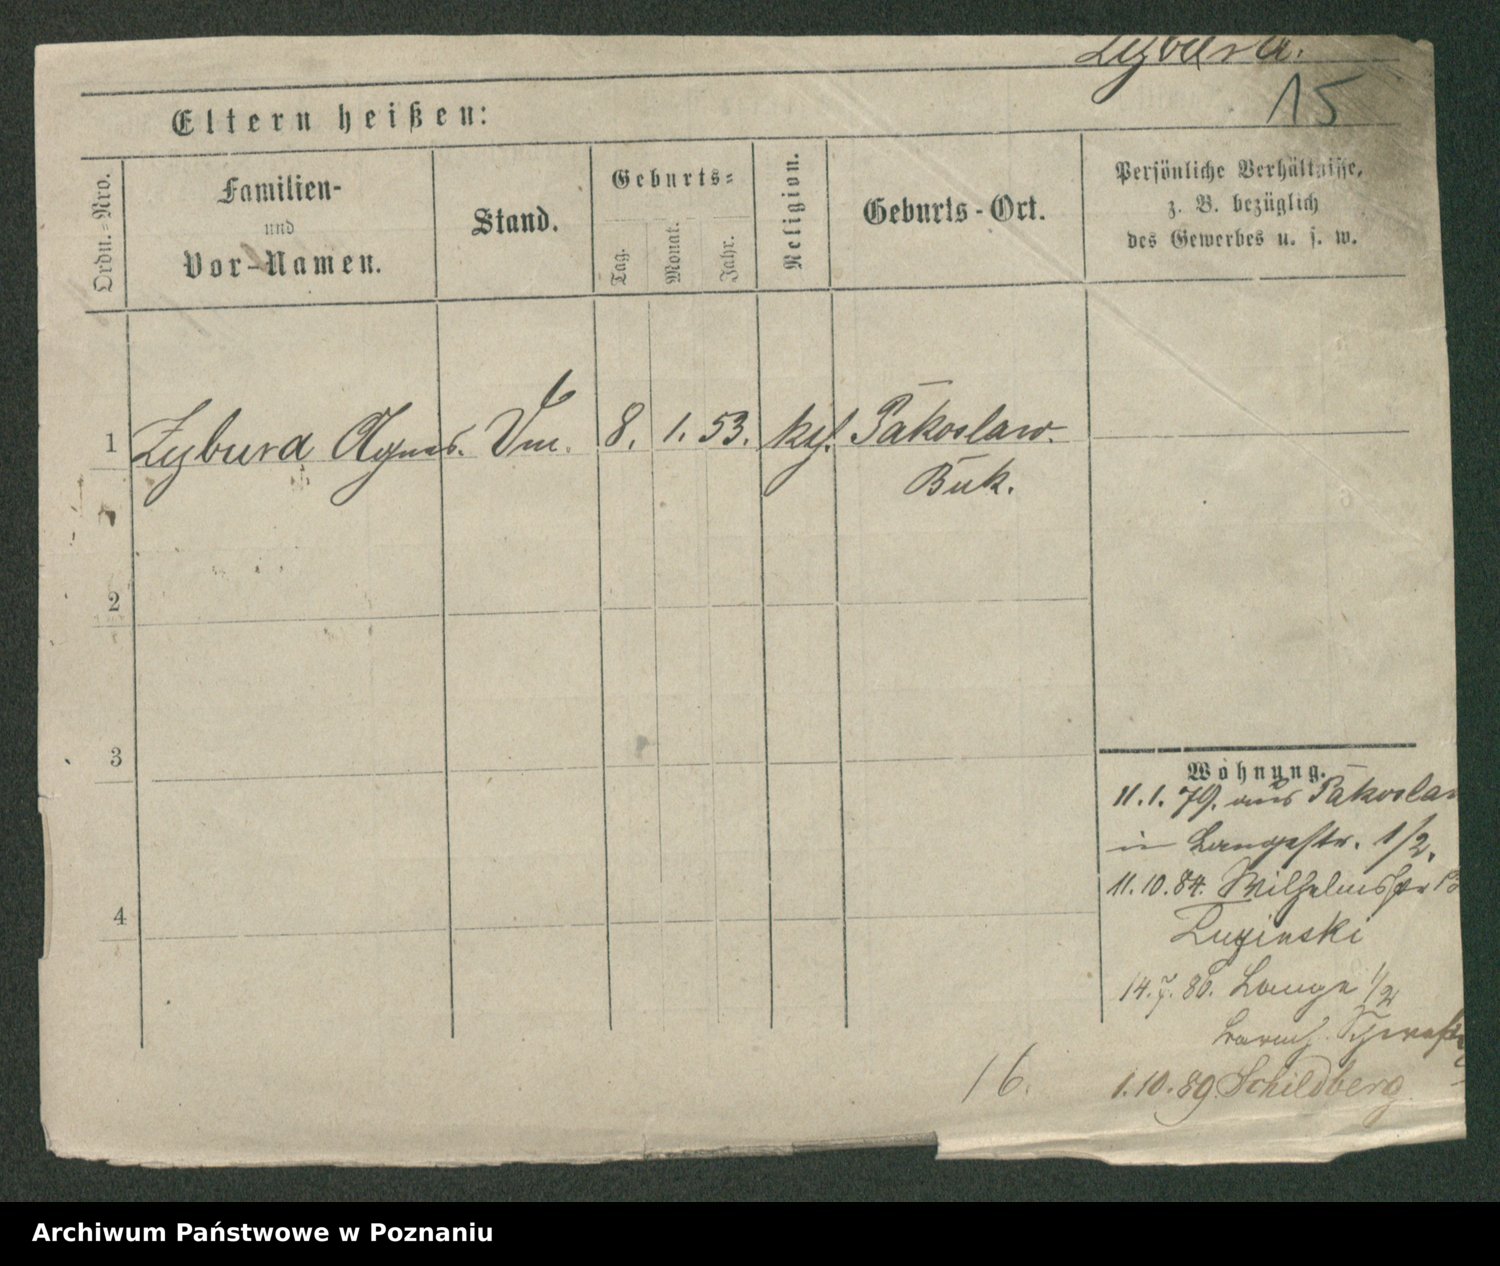 Zybura.
15
Eltern heißen:
Ordn.-Nro.
Familien-
und
Vor-Namen.
Stand.
Geburts-
Tag.
Monat.
Jahr.
Religion.
Geburts-Ort.
Persönliche Verhältnisse,
z. B. bezüglich
des Gewerbes u. s. w.
1 Zybura Agnes. 8. 1. 53. Pakoslaw.
Buk.
2
3
4
Wohnung.
11.1.79. aus Pakoslaw
in Langestr. 1/2.
11.10.84. Wilhelmstr
14.7.86. Lange 1/2
1.10.89. Schildberg
16.
Archiwum Państwowe w Poznaniu